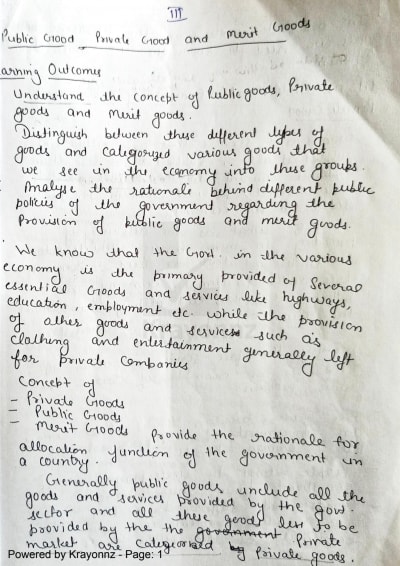 III
Public Good Private Good and Merit Goods
arning Outcomes
Understand the concept of Public goods, Private
goods and Merit goods.
Distinguish between these different types of
goods and categorized various goods that
we see in the economy into these groups.
Analyse the rationale behind different public
policies of the government regarding the
Provision of public goods and merit goods.
We know that the Govt. in the various
economy is the primary provided of several
essential Goods and services like highways,
education, employment etc. while the provision
of other goods and services such as
clothing and entertainment generally left
for private companies
Concept of
- Private Goods
- Public Goods
- Merit Goods Provide the rationale for
allocation function of the government in
a country.
Generally public goods include all the
goods and services provided by the govt.
sector and all these goods to be
provided by the the government Private
market are categorized by Private goods.
Powered by Krayonnz - Page: 1